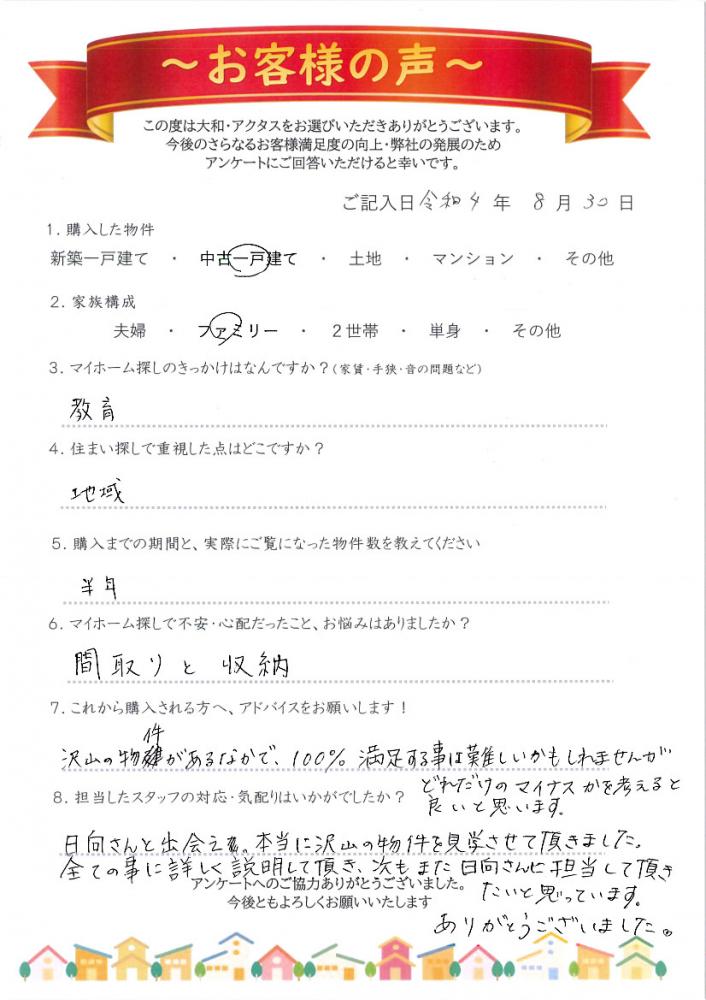 ～お客様の声～
この度は大和・アクタスをお選びいただきありがとうございます。
今後のさらなるお客様満足度の向上・弊社の発展のため
アンケートにご回答いただけると幸いです。
ご記入日 令和4年 8月30日
1. 購入した物件
新築一戸建て ・ 中古一戸建て ・ 土地 ・ マンション ・ その他
2. 家族構成
夫婦 ・ ファミリー ・ 2世帯 ・ 単身 ・ その他
3. マイホーム探しのきっかけはなんですか？(家賃・手狭・音の問題など)
教育
4. 住まい探しで重視した点はどこですか？
地域
5. 購入までの期間と、実際にご覧になった物件数を教えてください
半年
6. マイホーム探しで不安・心配だったこと、お悩みはありましたか？
間取りと収納
7. これから購入される方へ、アドバイスをお願いします！
沢山の物件があるなかで、100% 満足する事は難しいかもしれませんが
どれだけのマイナスかを考えると
良いと思います。
8. 担当したスタッフの対応・気配りはいかがでしたか？
日向さんと出会え、本当に沢山の物件を見学させて頂きました。
全ての事に詳しく説明して頂き、次もまた日向さんに担当して頂き
たいと思っています。
ありがとうございました。
アンケートへのご協力ありがとうございました。
今後ともよろしくお願いいたします